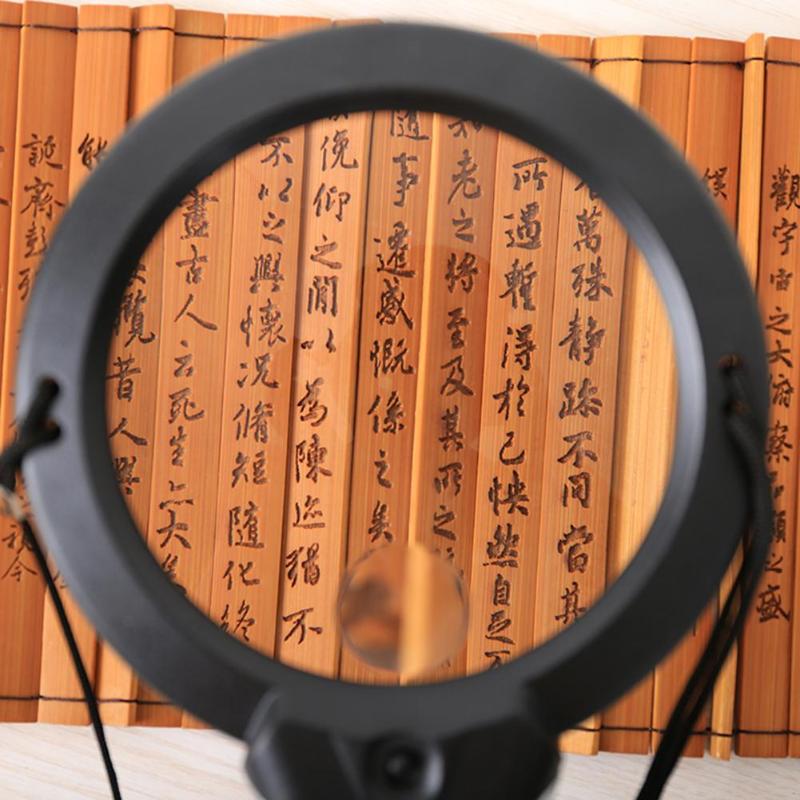 觀宇宙之大俯察品類之盛
萬殊靜躁不同當其
所遇暫得於己怏然自足不
知老之將至及其所之
隨事遷感慨係之矣
俛仰之間以為陳迹猶不
不以之興懷况脩短隨化終
盡古人云死生亦大矣
攬昔人興
能
誕齊彭殤
視今